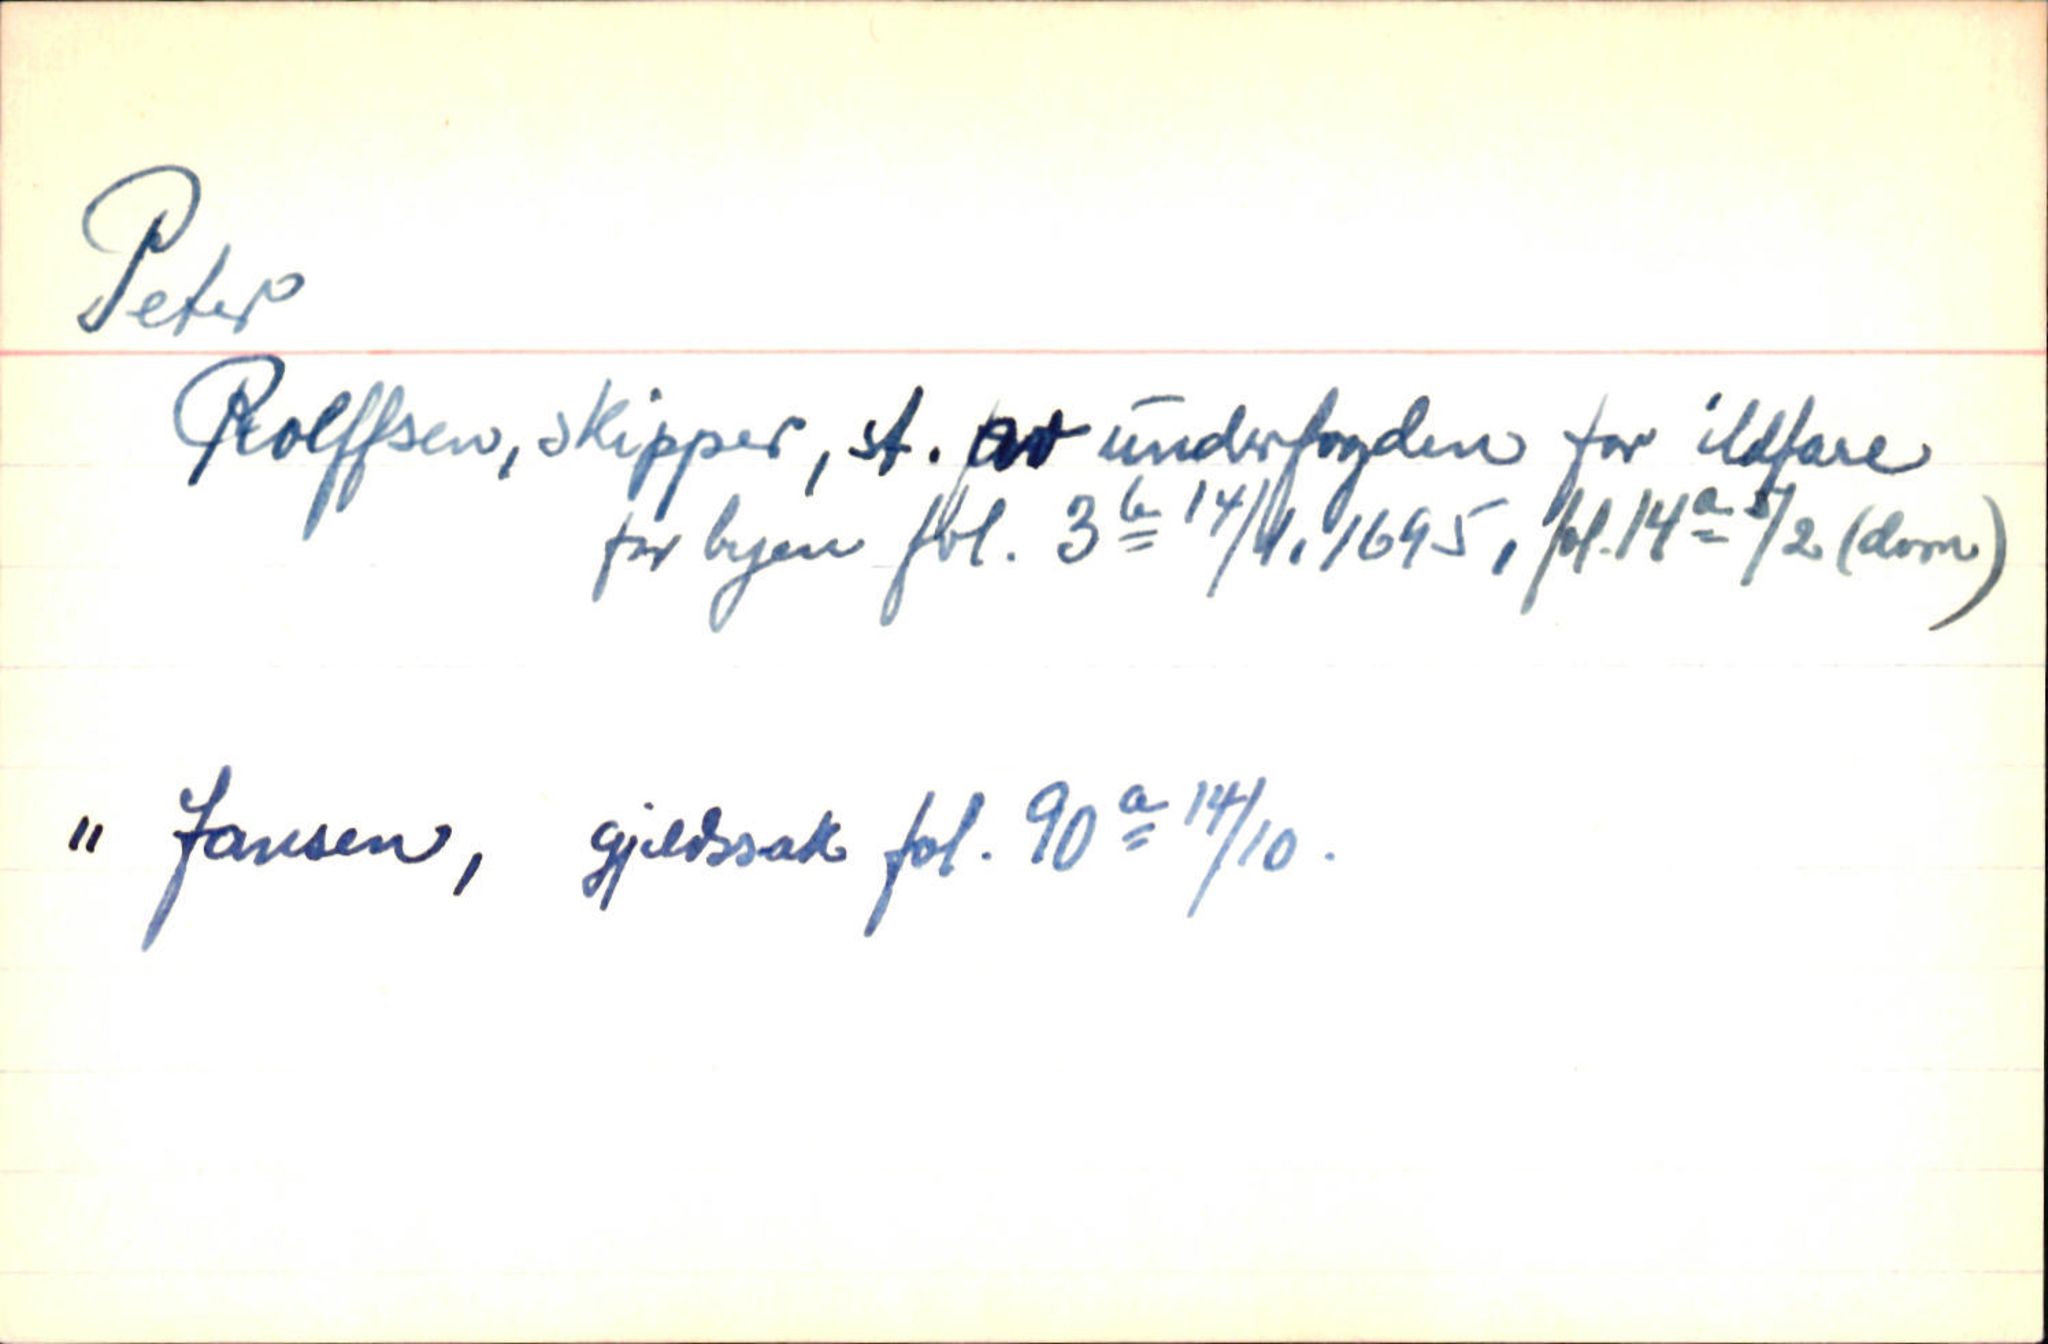 Peter
Rolffsen, skipper, st. av underfogden for ildfare
for byen fol. 3b 14/1. 1695, fol. 14a 5/2 (dom)
" Jansen, gjeldssak fol. 90a 14/10.